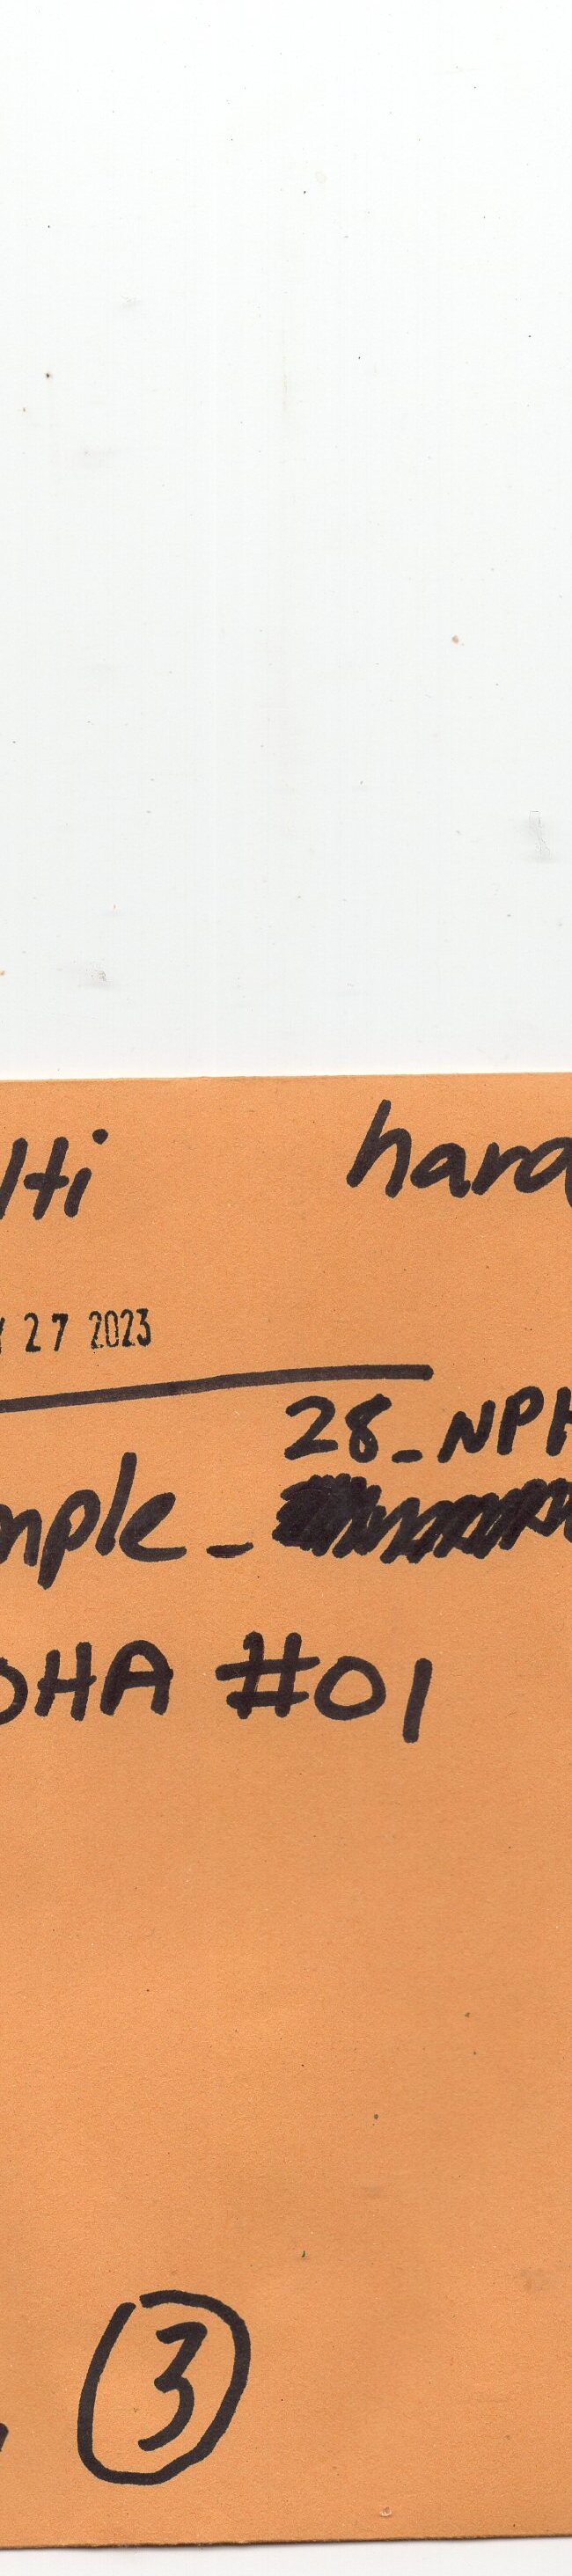 lti hard
27 2023
28-NPH
mple-
OHA #01
3